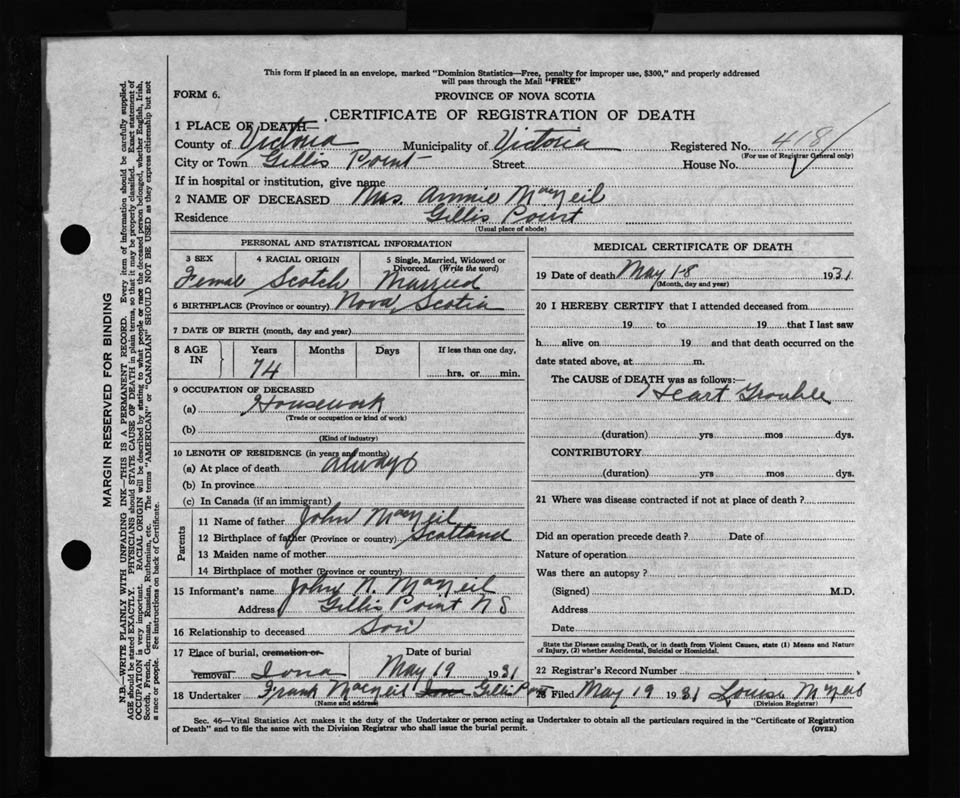 This form if placed in an envelope, marked "Dominion Statistics—Free, penalty for improper use, $300," and properly addressed
will pass through the Mail "FREE"
FORM 6.
PROVINCE OF NOVA SCOTIA
CERTIFICATE OF REGISTRATION OF DEATH
1 PLACE OF DEATH—
County of Victoria Municipality of Victoria Registered No. 418
(For use of Registrar General only)
City or Town Gillis Point Street House No.
If in hospital or institution, give name
2 NAME OF DECEASED Mrs. Annie MacNeil
Residence Gillis Point
(Usual place of abode)
PERSONAL AND STATISTICAL INFORMATION
3 SEX 4 RACIAL ORIGIN 5 Single, Married, Widowed or
Divorced. (Write the word)
Female Scotch Married
6 BIRTHPLACE (Province or country) Nova Scotia
7 DATE OF BIRTH (month, day and year)
8 AGE IN Years Months Days If less than one day,
74 hrs. or min.
9 OCCUPATION OF DECEASED
(a) Housework
(Trade or occupation or kind of work)
(b)
(Kind of industry)
10 LENGTH OF RESIDENCE (in years and months)
(a) At place of death always
(b) In province
(c) In Canada (if an immigrant)
Parents
11 Name of father John MacNeil
12 Birthplace of father (Province or country) Scotland
13 Maiden name of mother
14 Birthplace of mother (Province or country)
15 Informant's name John N. MacNeil
Address Gillis Point N S
16 Relationship to deceased Son
17 Place of burial, cremation or Date of burial
removal Iona May 19 1931
18 Undertaker Frank MacNeil Iona Gillis Point
(Name and address)
MEDICAL CERTIFICATE OF DEATH
19 Date of death May 18 1931
(Month, day and year)
20 I HEREBY CERTIFY that I attended deceased from
19 to 19 that I last saw
h alive on 19 and that death occurred on the
date stated above, at m.
The CAUSE of DEATH was as follows:—
Heart Trouble
(duration) yrs mos dys.
CONTRIBUTORY
(duration) yrs mos dys.
21 Where was disease contracted if not at place of death?
Did an operation precede death? Date of
Nature of operation
Was there an autopsy?
(Signed) M.D.
Address
Date
State the Disease causing Death, or in death from Violent Causes, state (1) Means and Nature
of Injury, (2) whether Accidental, Suicidal or Homicidal.
22 Registrar's Record Number
23 Filed May 19 1931 Louise McNeil
(Division Registrar)
Sec. 46—Vital Statistics Act makes it the duty of the Undertaker or person acting as Undertaker to obtain all the particulars required in the "Certificate of Registration
of Death" and to file the same with the Division Registrar who shall issue the burial permit.
(OVER)
MARGIN RESERVED FOR BINDING
N.B.—WRITE PLAINLY WITH UNFADING INK—THIS IS A PERMANENT RECORD. Every item of information should be carefully supplied.
AGE should be stated EXACTLY. PHYSICIANS should STATE CAUSE OF DEATH in plain terms, so that it may be properly classified. Exact statement of
OCCUPATION is very important. RACIAL ORIGIN will be described by stating to what people or race the deceased person belonged, whether English, Irish,
Scotch, French, German, Russian, Ruthenian, etc. The terms "AMERICAN" or "CANADIAN" SHOULD NOT BE USED as they express citizenship but not
a race or people. See instructions on back of Certificate.